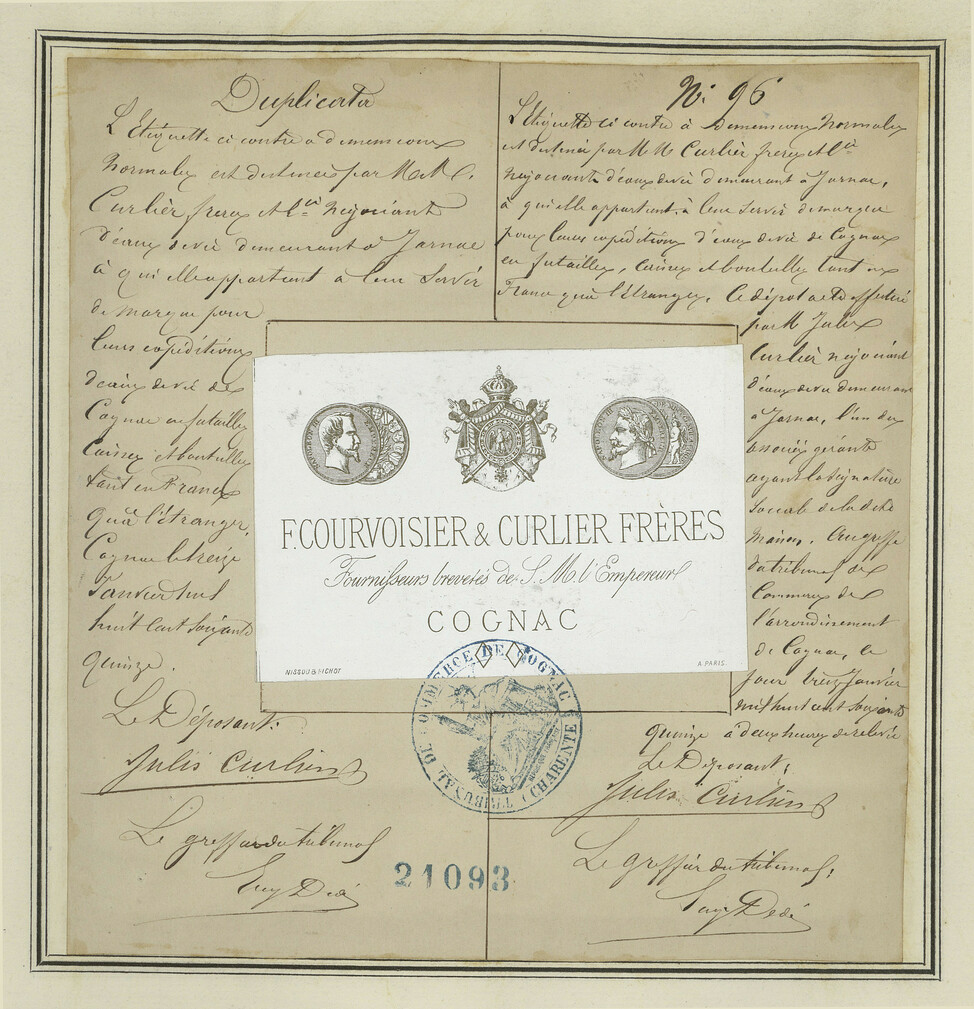 Duplicata
L'Etiquette ci contre à dimensions
Normales est destinée par M.M.
Curlier frères & Cie Négociants
d'eaux de vie demeurant à Jarnac
à qui elle appartient à leur servir
de marque pour
leurs expéditions
d'eaux de vie de
Cognac en futailles
Caisses et bouteilles
tant en France
qu'à l'étranger.
Cognac le treize
Janvier mil
huit cent soixante
quinze.
Le Déposant:
Jules Curlier
Le greffier du tribunal
No. 96
L'Etiquette ci contre à dimensions Normales
est destinée par M M Curlier frères & Cie
négociants d'eaux de vie demeurant à Jarnac,
à qui elle appartient, à leur servir de marque
pour leurs expéditions d'eaux de vie de Cognac
en futailles, caisses et bouteilles tant en
France qu'à l'étranger. Ce dépot a été effectué
par M Jules
Curlier négociant
d'eaux de vie demeurant
à Jarnac, l'un des
associés gérants
ayant la signature
sociale de la dite
maison. Au greffe
du tribunal de
Commerce de
l'arrondissement
de Cognac, le
jour treize Janvier
mil huit cent soixante
quinze à deux heures de relevée
Le Déposant;
Jules Curlier
Le greffier du tribunal,
NAPOLEON III
F. COURVOISIER & CURLIER FRÈRES
Fournisseurs brevetés de S. M. l'Empereur
COGNAC
NISSOU & PICHOT
A PARIS.
TRIBUNAL DE COMMERCE DE COGNAC (CHARENTE)
21093